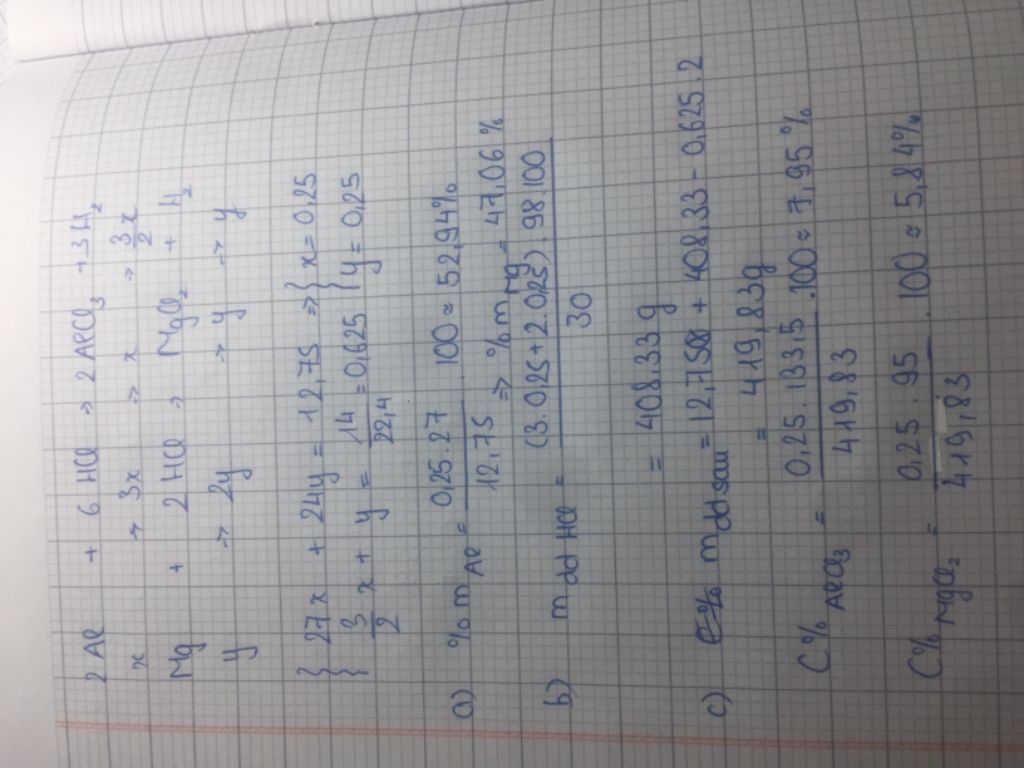 2Al + 6 HCl -> 2 AlCl₃ + 3 H₂
x -> 3x -> x -> 3/2 x
Mg + 2 HCl -> MgCl₂ + H₂
y -> 2y -> y -> y
{ 27x + 24y = 12,75 => { x = 0,25
{ 3/2 x + y = 14/22,4 = 0,625 { y = 0,25
a) %m Al = 0,25.27/12,75 100 ≈ 52,94%
=> %m Mg = 47,06 %
b) m dd HCl = (3.0,25 + 2.0,25).98.100/30
= 408,33 g
c) m dd sau = 12,75 + 408,33 - 0,625.2
= 419,83g
C% AlCl₃ = 0,25.133,5/419,83 .100 ≈ 7,95%
C% MgCl₂ = 0,25.95/419,83 .100 ≈ 5,84%